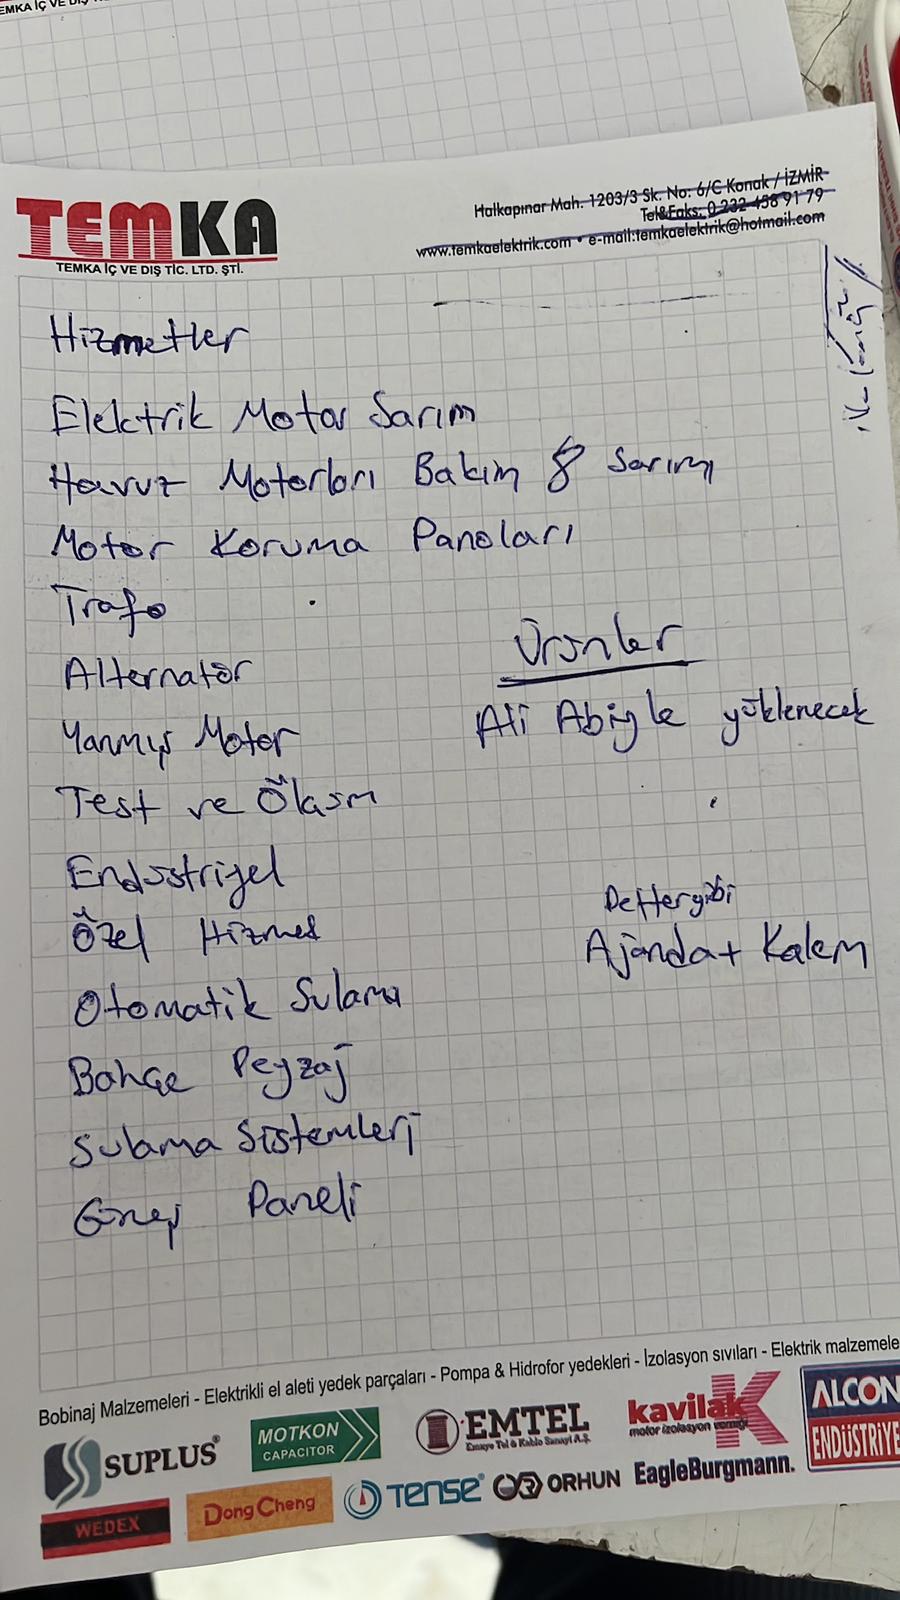 TEMKA İÇ VE DIŞ
TEMKA
TEMKA İÇ VE DIŞ TİC. LTD. ŞTİ.
Halkapınar Mah. 1203/3 Sk. No: 6/C Konak / İZMİR
Tel&Faks: 0 232 458 91 79
www.temkaelektrik.com • e-mail:temkaelektrik@hotmail.com
Hizmetler
Elektrik Motor Sarım
Havuz Motorları Bakım & Sarımı
Motor Koruma Panoları
Trafo
Alternatör
Yanmış Motor
Test ve Ölçüm
Endüstriyel
Özel Hizmet
Otomatik Sulama
Bahçe Peyzaj
Sulama Sistemleri
Güneş Paneli
Ürünler
Ali Abiyle yüklenecek
Defter gibi
Ajanda + Kalem
Bobinaj Malzemeleri - Elektrikli el aleti yedek parçaları - Pompa & Hidrofor yedekleri - İzolasyon sıvıları - Elektrik malzemele
SUPLUS
MOTKON
CAPACITOR
EMTEL
Emaye Tel & Kablo Sanayi A.Ş.
kavilak
motor izolasyon verniği
ALCON
ENDÜSTRİYE
WEDEX
DongCheng
TENSE
ORHUN
EagleBurgmann.